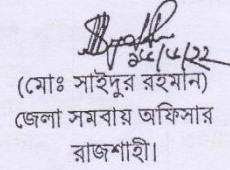 ২৫/৫/২২
(মোঃ সাইদুর রহমান)
জেলা সমবায় অফিসার
রাজশাহী।